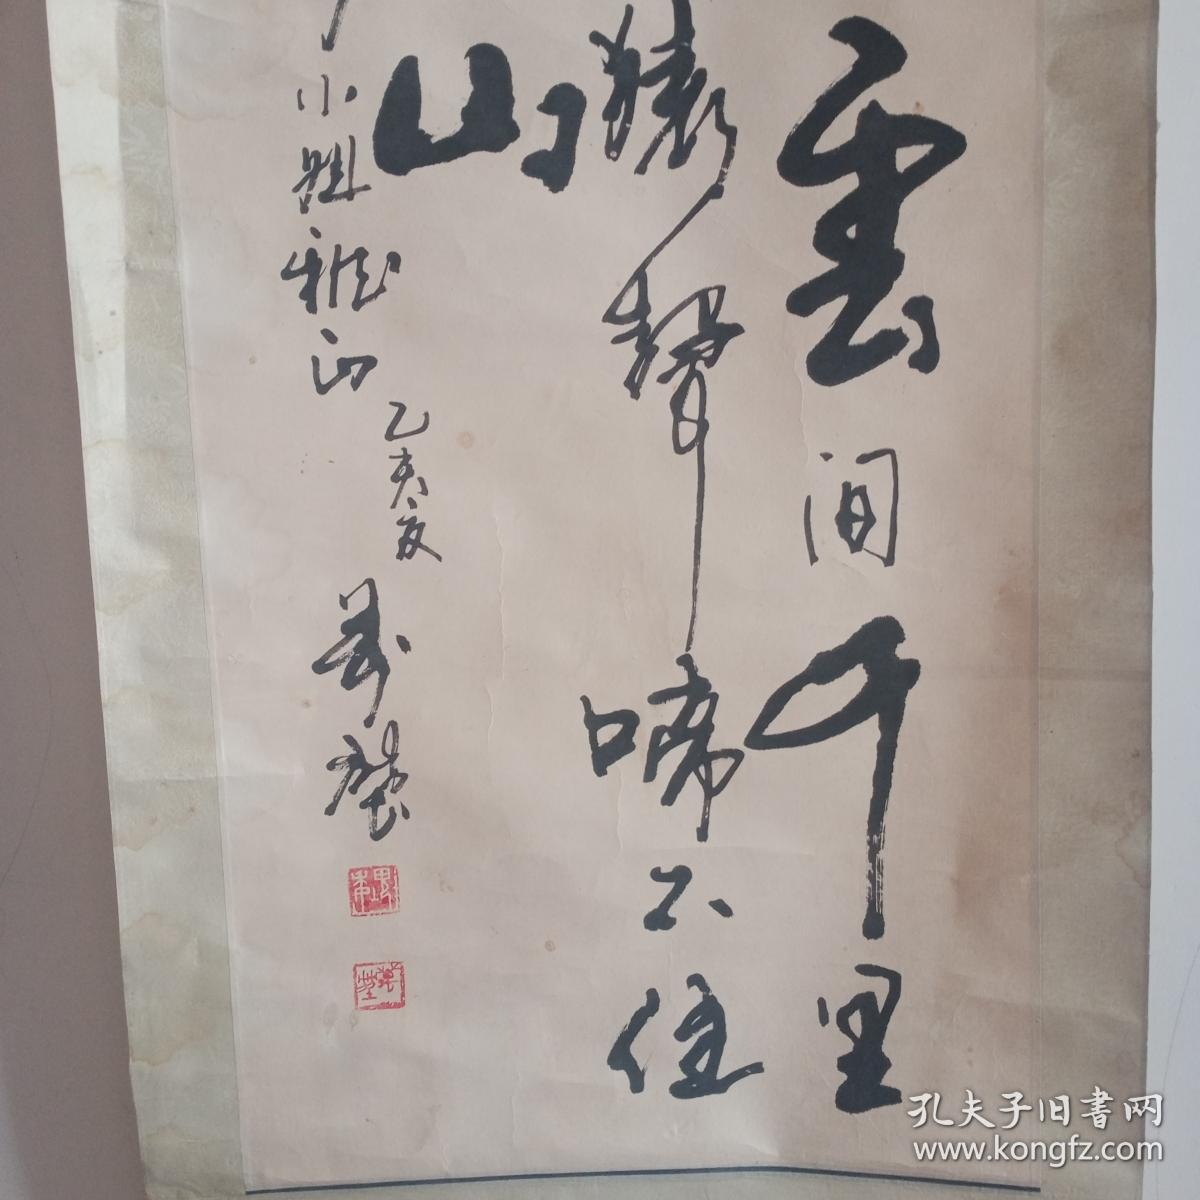 雲间千里
猿聲啼不住
山
小姐雅正
乙亥夏
孔夫子旧书网
www.kongfz.com